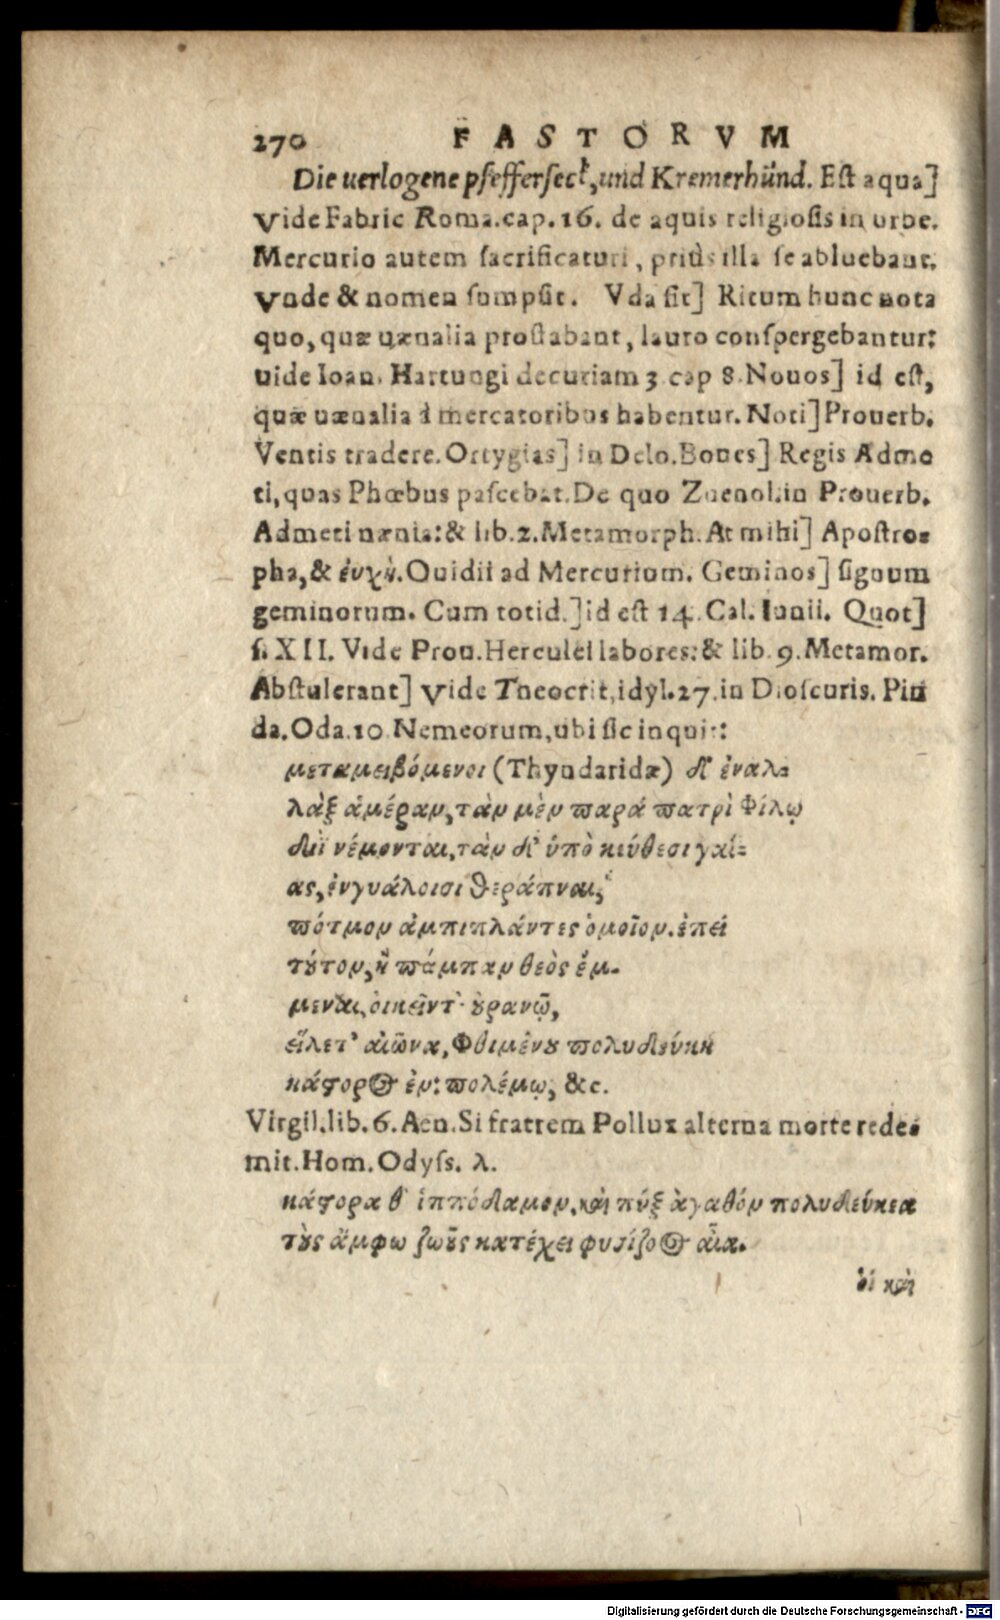 270 FASTORVM
Die uerlogene pfefferseck, und Kremerhünd. Est aqua]
Vide Fabric Roma. cap. 16. de aquis religiosis in urbe.
Mercurio autem sacrificaturi, priùs illa se abluebant.
Vnde & nomen sumpsit. Vda fit] Ritum hunc nota
quo, quæ uænalia prostabant, lauro conspergebantur:
uide Ioan. Hartungi decuriam 3 cap 8. Nouos] id est,
quæ uænalia à mercatoribus habentur. Noti] Prouerb.
Ventis tradere. Ortygias] in Delo. Boues] Regis Adme
ti, quas Phœbus pascebat. De quo Zuenol. in Prouerb.
Admeti nænia: & lib. 2. Metamorph. At mihi] Apostro-
pha, & ἐυχὴ. Ouidii ad Mercurium. Geminos] signum
geminorum. Cum totid.] id est 14. Cal. Iunii. Quot]
s. XII. Vide Prou. Herculei labores: & lib. 9. Metamor.
Abstulerant] Vide Theocrit. idyl. 27. in Dioscuris. Pin
da. Oda. 10 Nemeorum, ubi sic inquit:
μεταμειβόμενοι (Thyndaridæ) δ' ἐναλ-
λὰξ ἁμέραν, τὰν μὲν παρά πατρὶ φίλῳ
διῒ νέμονται, τὰν δ' ὑπὸ κεύθεσι γαί-
ας, ἐνγυάλοισι θεράπναι,
πότμον ἀμπιπλάντες ὁμοῖον. ἐπεί
τȣ́τον, ἢ πάμπαν θεὸς ἔμ-
μεναι, ὀικεῖντ' ȣ̓ρανῷ,
εἵλετ' αἰῶνα, φθιμένȣ πολυδεύκη
κάςορος ἐν πολέμῳ, &c.
Virgil. lib. 6. Aen. Si fratrem Pollux alterna morte rede-
mit. Hom. Odyss. λ.
κάςορα θ' ἱππόδαμον, καὶ πύξ ἀγαθόν πολυδεύκεα
τȣ̀ς ἄμφω ζωȣ̀ς κατέχει φυσίζοος αἶα.
ὁί καὶ
Digitalisierung gefördert durch die Deutsche Forschungsgemeinschaft - DFG